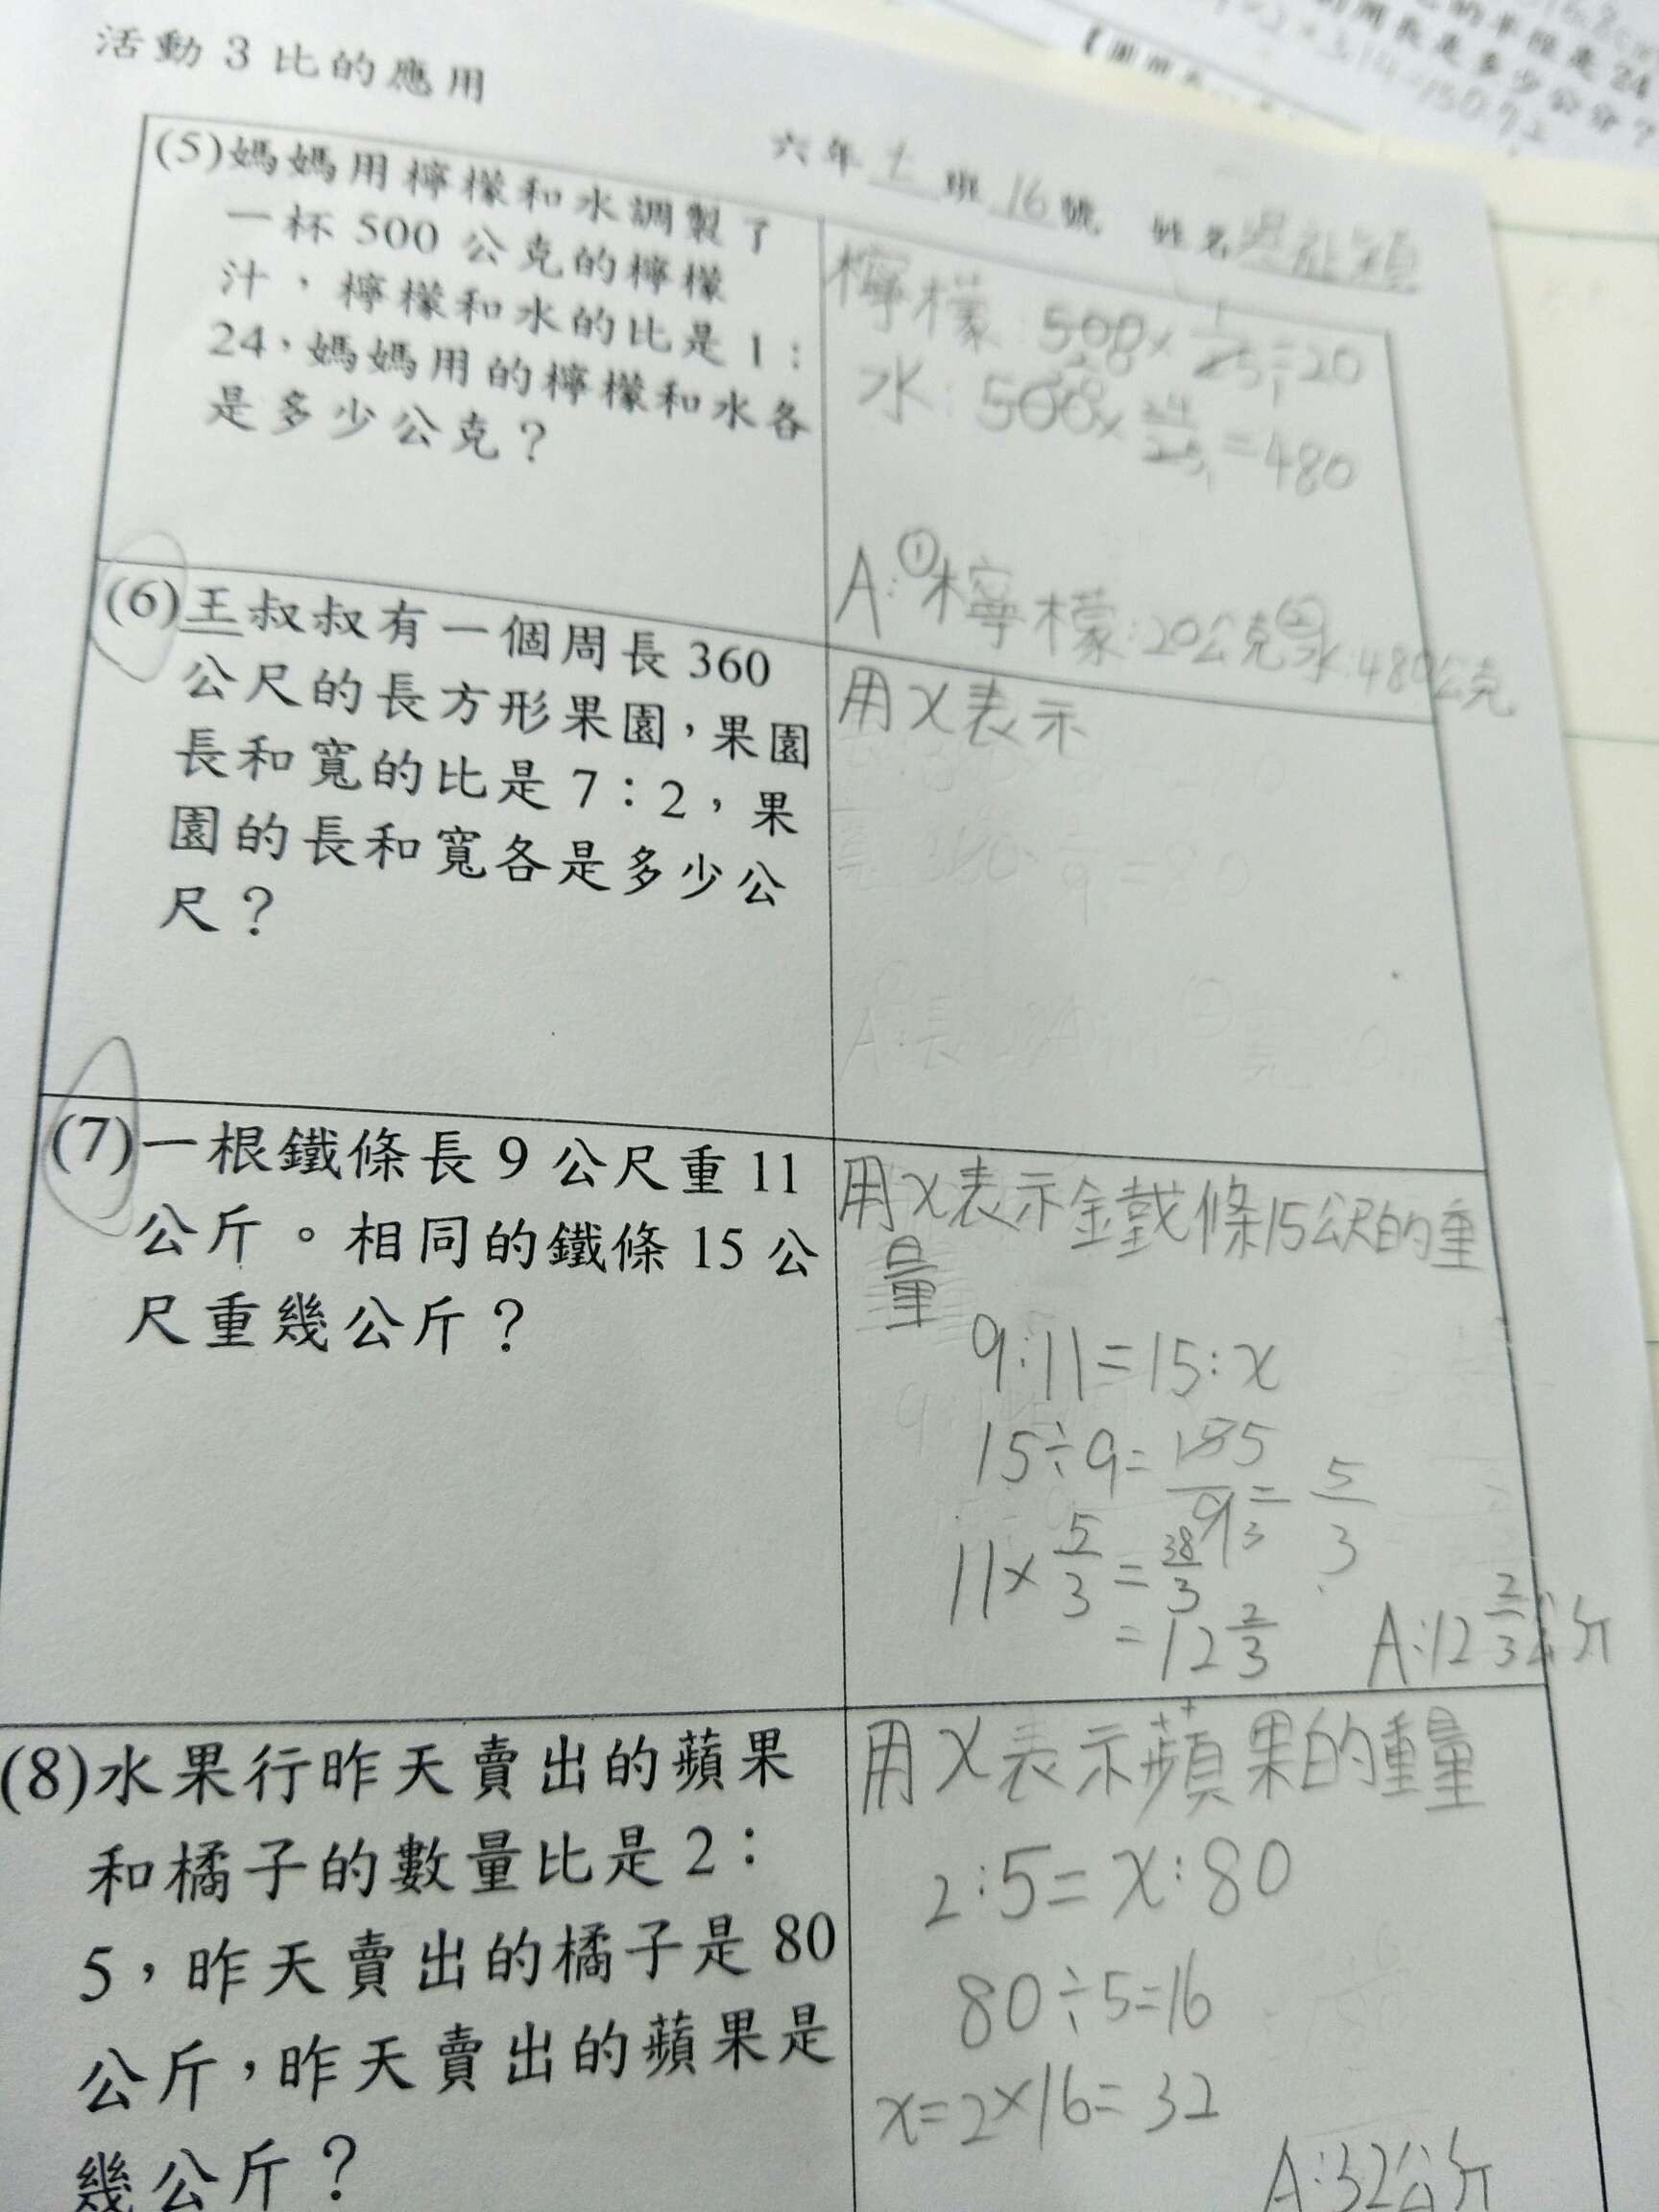 活動3 比的應用
六年 七 班 16 號 姓名
(5)媽媽用檸檬和水調製了
一杯 500 公克的檸檬
汁，檸檬和水的比是 1：
24，媽媽用的檸檬和水各
是多少公克？
檸檬: 500×1/25=20
水: 500×24/25=480
A:①檸檬:20公克②水:480公克
(6)王叔叔有一個周長 360
公尺的長方形果園，果園
長和寬的比是 7：2，果
園的長和寬各是多少公
尺？
用x表示
(7)一根鐵條長 9 公尺重 11
公斤。相同的鐵條 15 公
尺重幾公斤？
用x表示鐵條15公尺的重
量
9:11=15:x
15÷9=15/9=5/3
11×5/3=38/3
=12 2/3
A:12 2/3公斤
(8)水果行昨天賣出的蘋果
和橘子的數量比是 2：
5，昨天賣出的橘子是 80
公斤，昨天賣出的蘋果是
幾公斤？
用x表示蘋果的重量
2:5=x:80
80÷5=16
x=2×16=32
A:32公斤